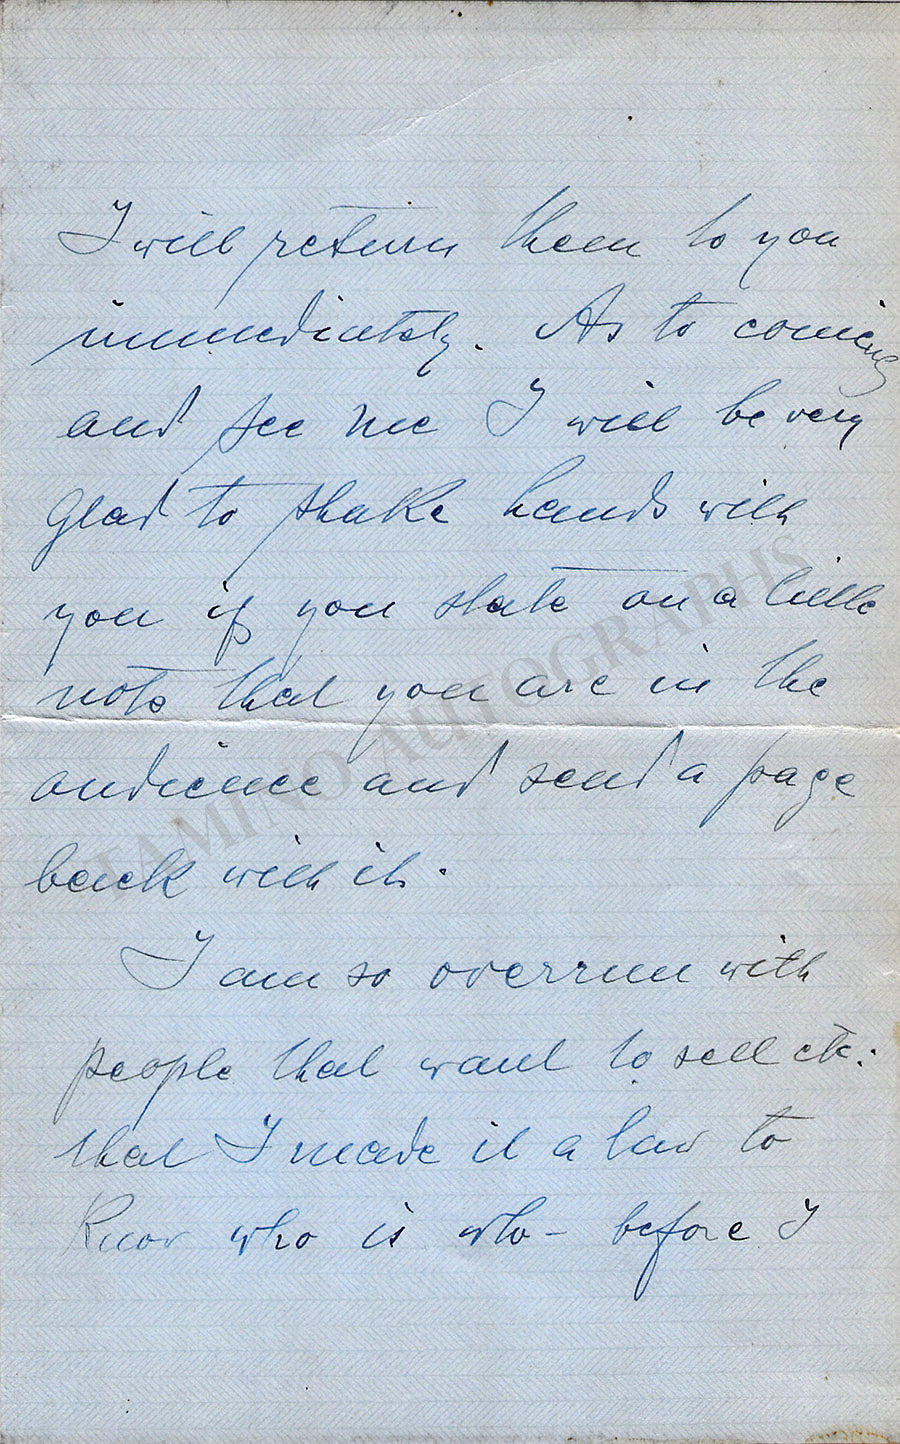 I will return them to you
immediately. As to coming
and see me I will be very
glad to shake hands with
you if you state on a little
note that you are in the
audience and send a page
back with it.
I am so overrun with
people that want to sell etc.
that I made it a law to
know who is who - before I
TAMINO AUTOGRAPHS